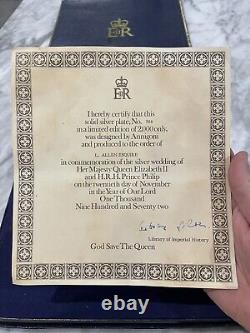 E II R
E II R
I hereby certify that this
solid silver plate, No.
in a limited edition of 2,000 only,
was designed by Annigoni
and produced to the order of
L. ALLEN ESQUIRE
in commemoration of the silver wedding of
Her Majesty Queen Elizabeth II
and H.R.H. Prince Philip
on the twentieth day of November
in the Year of Our Lord
One Thousand
Nine Hundred and Seventy two
Library of Imperial History
God Save The Queen